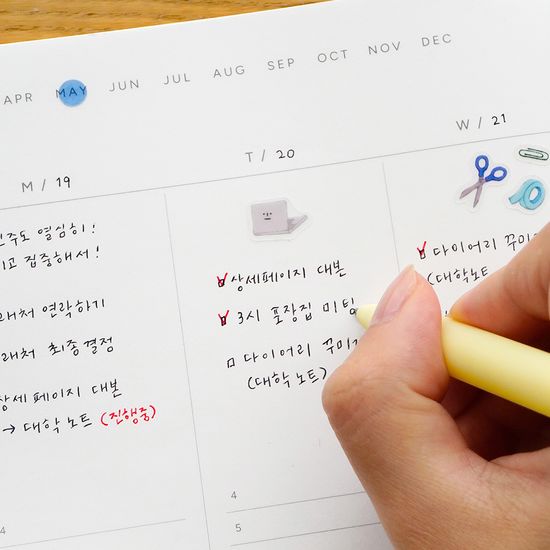 APR MAY JUN JUL AUG SEP OCT NOV DEC
M / 19
열심히!
집중해서!
연락하기
최종결정
상세페이지 대본
→ 대학노트 (진행중)
4
T / 20
상세페이지 대본
3시 포장집 미팅
다이어리 꾸미
(대학노트)
4
5
W / 21
다이어리 꾸미
(대학노트